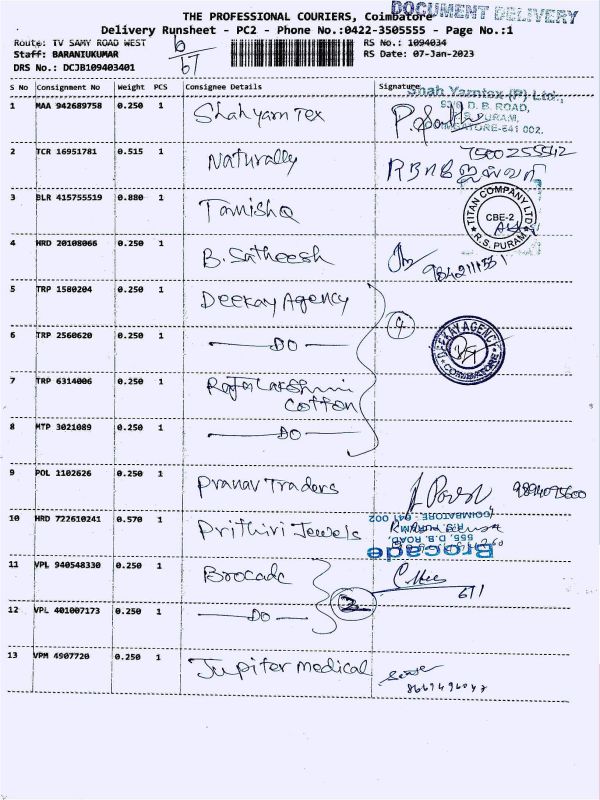 THE PROFESSIONAL COURIERS, Coimbatore
DOCUMENT DELIVERY
Delivery Runsheet - PC2 - Phone No.:0422-3505555 - Page No.:1
Route: TV SAMY ROAD WEST
RS No.: 1094034
Staff: BARANIUKUMAR
RS Date: 07-Jan-2023
DRS No.: DCJB109403401
S No Consignment No Weight PCS Consignee Details Signature
Shah Yarntex (P) Ltd.,
D. B. ROAD,
R.S. PURAM,
COIMBATORE-641 002.
1 MAA 942689758 0.250 1 Shahyarn Tex
2 TCR 16951781 0.515 1 Naturally 7500255542
3 BLR 415755519 0.880 1 Tanishq
TITAN COMPANY LTD
CBE-2
R.S. PURAM
4 HRD 20108066 0.250 1 B. Satheesh 9842111551
5 TRP 1580204 0.250 1 Deekay Agency
6 TRP 2560620 0.250 1 DO
4
DEEKAY AGENCY
COIMBATORE
7 TRP 6314006 0.250 1 Rajalakshmi
cotton
8 MTP 3021089 0.250 1 DO
9 POL 1102626 0.250 1 Pranav Traders 9894095600
10 HRD 722610241 0.570 1 Prithivi Jewels
Brocade
555, D.B. ROAD,
R.S. PURAM,
COIMBATORE - 641 002
11 VPL 940548330 0.250 1 Brocade
12 VPL 401007173 0.250 1 DO
2
611
13 VPM 4907720 0.250 1 Jupiter medical